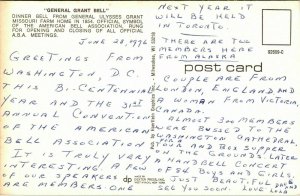 "GENERAL GRANT BELL"
DINNER BELL FROM GENERAL ULYSSES GRANT
MISSOURI FARM HOME IN 1854. OFFICIAL SYMBOL
OF THE AMERICAN BELL ASSOCIATION, RUNG
FOR OPENING AND CLOSING OF ALL OFFICIAL
A.B.A. MEETINGS.
JUNE 28, 1976
GREETINGS FROM
WASHINGTON, D.C.
THIS BI-CENTENNIAL
YEAR AND THE 31ST
ANNUAL CONVENTION
OF THE AMERICAN
BELL ASSOCIATION
IT IS TRULY VERY
INTERESTING A FEW
OF OUR SPEAKERS
ARE MEMBERS ONE
NEXT YEAR IT
WILL BE HELD
IN TORONTO
THERE ARE TWO
MEMBERS HERE
FROM ALASKA
post card
COUPLE ARE FROM
LONDON, ENGLAND AND
A WOMAN FROM VICTORIA
CANADA.
ALMOST 300 MEMBERS
WERE BUSSED TO THE
WASHINGTON CATHEDRAL
AND BOX SUPPER
ON THE GROUNDS LATER
A HANDBELL CONCERT
BY 54 BOYS AND GIRLS
JUST BEAUTIFUL
SEE YOU SOON. LOVE